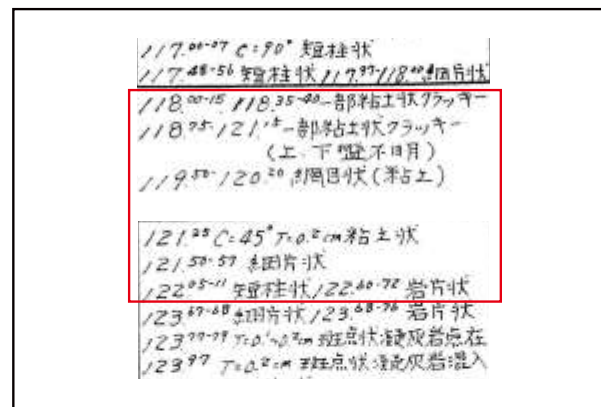 117.00-07 C=90° 短柱状
117.48-56 短柱状 117.97-118.00 細片状
118.00-15, 118.35-40 一部粘土状クラッキー
118.75-121.15 一部粘土状クラッキー
(上、下盤不明)
119.50-120.20 網目状(粘土)
121.25 C=45° T=0.2cm 粘土状
121.50-57 細片状
122.05-11 短柱状/122.60-72 岩片状
123.67-68 細片状/123.68-76 岩片状
123.77-79 T=0.1~0.2cm 斑点状凝灰岩点在
123.97 T=0.2cm 斑点状凝灰岩混入